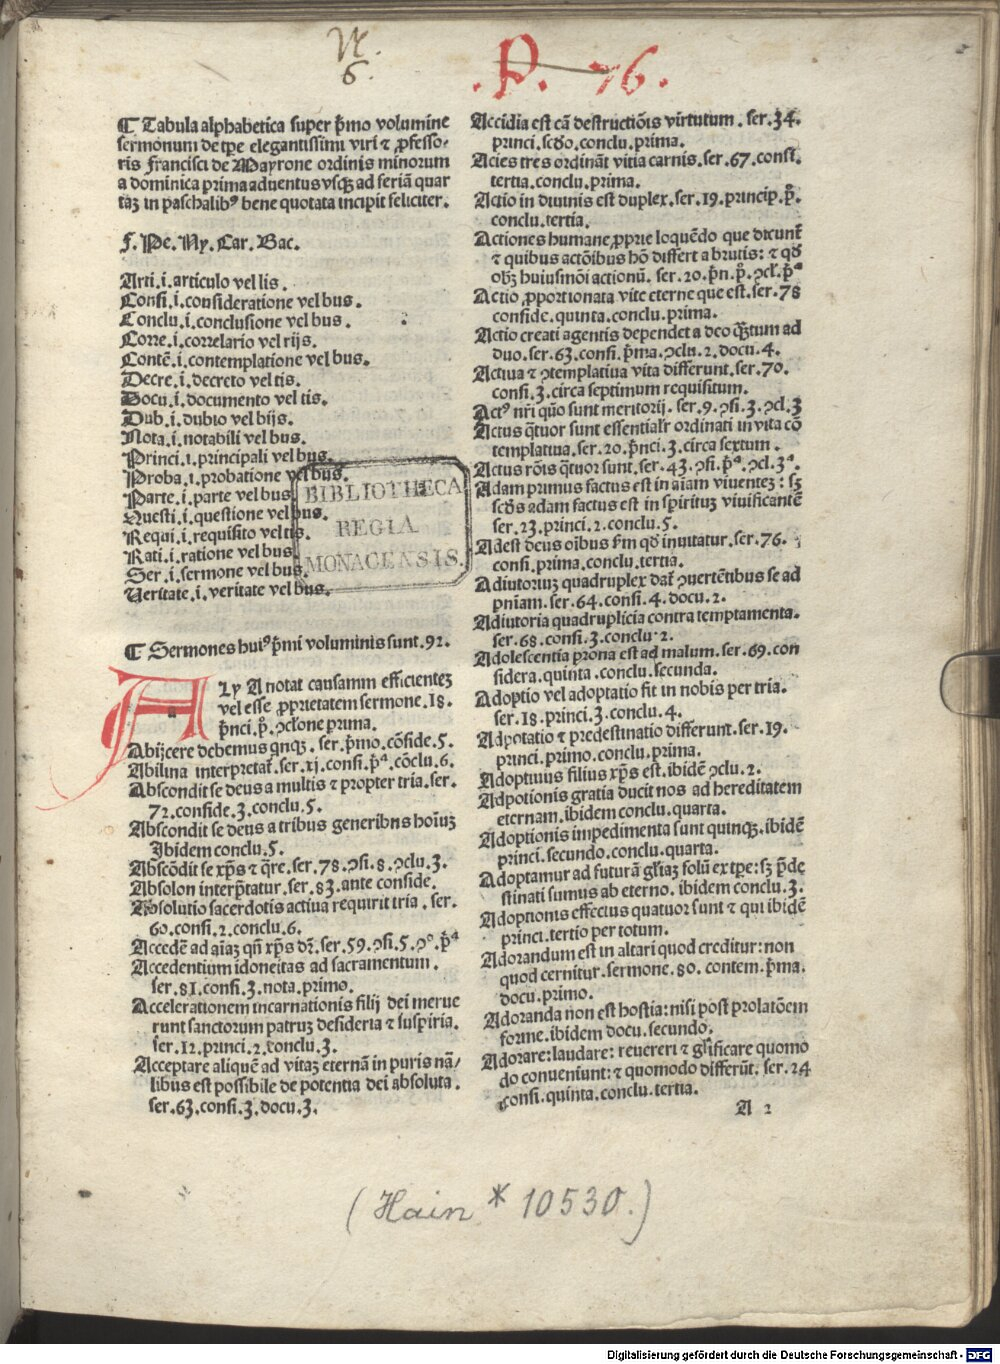 VI.
6.
.P. 76.
¶ Tabula alphabetica super p̄mo volumine
sermonum de tp̄e elegantissimi viri ⁊ ꝓfesso-
ris Francisci de Mayrone ordinis minorum
a dominica prima aduentus vsqꝫ ad feriā quar
taꝫ in paschalibꝰ bene quotata incipit feliciter.
F. Pe. Ny. Car. Bac.
Arti.i.articulo vel lis.
Consi.i.consideratione vel bus.
Conclu.i.conclusione vel bus.
Corre.i.correlario vel rijs.
Contē.i.contemplatione vel bus.
Decre.i.decreto vel tis.
Docu.i.documento vel tis.
Dub.i.dubio vel bijs.
Nota.i.notabili vel bus.
Princi.i.principali vel bus.
Proba.i.probatione vel bus.
Parte.i.parte vel bus
Questi.i.questione vel bus.
Requi.i.requisito vel tis.
Rati.i.ratione vel bus.
Ser.i.sermone vel bus.
Veritate.i.veritate vel bus.
BIBLIOTHECA
REGIA
MONACENSIS.
¶ Sermones huiꝰ p̄mi voluminis sunt.92.
ALy A notat causamm efficienteꝫ
vel esse ꝓprietatem sermone.18.
p̄nci.p̊.ↄclōne prima.
Abijcere debemus qnqꝫ.ser.p̄mo.cōside.5.
Abilina interpretat̄.ser.xj.consi.p̄ª.cōclu.6.
Abscondit se deus a multis ⁊ propter tria.ser.
72.conside.3.conclu.5.
Abscondit se deus a tribus generibns hoīuꝫ
Ibidem conclu.5.
Abscōdit se xp̄s ⁊ q̄re.ser.78.ↄsi.8.ↄclu.3.
Absolon interp̄tatur.ser.83.ante conside.
Absolutio sacerdotis actiua requirit tria.ser.
60.consi.2.conclu.6.
Accedē ad aīaꝫ qn̄ xp̄s dr̄.ser.59.ↄsi.5.ↄº.p̄ª
Accedentium idoneitas ad sacramentum.
ser.81.consi.3.nota.primo.
Accelerationem incarnationis filij dei merue
runt sanctorum patruꝫ desideria ⁊ suspiria.
ser.12.princi.2.conclu.3.
Acceptare aliquē ad vitaꝫ eternā in puris nā-
libus est possibile de potentia dei absoluta.
ser.63.consi.3.docu.3.
Accidia est cā destructiōis virtutum.ser.34.
princi.scd̄o.conclu.prima.
Acies tres ordināt vitia carnis.ser.67.const̄.
tertia.conclu.prima.
Actio in diuinis est duplex.ser.19.princip.p̊.
conclu.tertia.
Actiones humane ꝓprie loquēdo que dicunt̄
⁊ quibus actōibus hō differt a brutis: ⁊ qd̄
obꝫ huiusmōi actionū.ser.20.p̄n.p̊.ↄcl̄.p̄ª
Actio ꝓportionata vite eterne que est.ser.78
conside.quinta.conclu.prima.
Actio creati agentis dependet a deo qꝫtum ad
duo.ser.63.consi.p̄ma.ↄclu.2.docu.4.
Actiua ⁊ ↄtemplatiua vita differunt.ser.70.
consi.3.circa septimum requisitum.
Actꝰ nr̄i quō sunt meritorij.ser.9.ↄsi.3.ↄcl.3
Actus q̄tuor sunt essentialr̄ ordinati in vita cō
templatiua.ser.20.p̄nci.3.circa sextum.
Actus rōis q̄tuor sunt.ser.43.ↄsi.p̄ª.ↄcl.3ª.
Adam primus factus est in aīam viuenteꝫ: sꝫ
scd̄s adam factus est in spirituꝫ viuificantē
ser.23.princi.2.conclu.5.
Adest deus oībus fm̄ qd̄ inuitatur.ser.76.
consi.prima.conclu.tertia.
Adiutoriuꝫ quadruplex dat̄ ↄuertētibus se ad
pniam.ser.64.consi.4.docu.2.
Adiutoria quadruplicia contra temptamenta.
ser.68.consi.3.conclu.2.
Adolescentia prona est ad malum.ser.69.con
sidera.quinta.conclu.secunda.
Adoptio vel adoptatio fit in nobis per tria.
ser.18.princi.3.conclu.4.
Adpotatio ⁊ predestinatio differunt.ser.19.
princi.primo.conclu.prima.
Adoptiuus filius xp̄s est.ibidē ↄclu.2.
Adpotionis gratia ducit nos ad hereditatem
eternam.ibidem conclu.quarta.
Adoptionis impedimenta sunt quinqꝫ.ibidē
princi.secundo.conclu.quarta.
Adoptamur ad futurā gl̄iaꝫ solū ex tp̄e: sꝫ p̄de
stinati sumus ab eterno.ibidem conclu.3.
Adoptionis effectus quatuor sunt ⁊ qui ibidē
princi.tertio per totum.
Adorandum est in altari quod creditur: non
quod cernitur.sermone.80.contem.p̄ma.
docu.primo.
Adoranda non est hostia: nisi post prolatōem
forme.ibidem docu.secundo.
Adorare: laudare: reuereri ⁊ gl̄ificare quomo
do conueniunt: ⁊ quomodo differūt.ser.24
consi.quinta.conclu.tertia.
A 2
(Hain * 10530.)
Digitalisierung gefördert durch die Deutsche Forschungsgemeinschaft - DFG